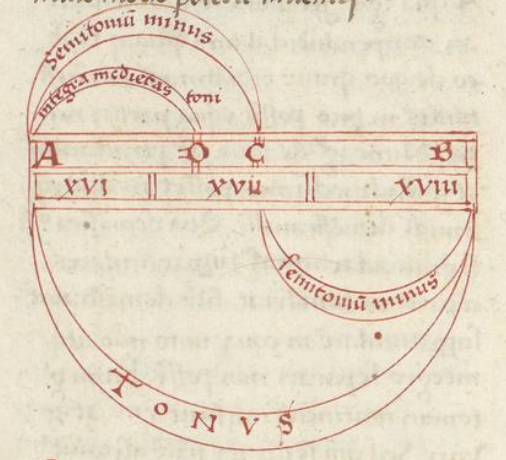 Semitoniū minus
integra medietas toni
A D C B
XVI XVII XVIII
semitoniū minus
TONVS